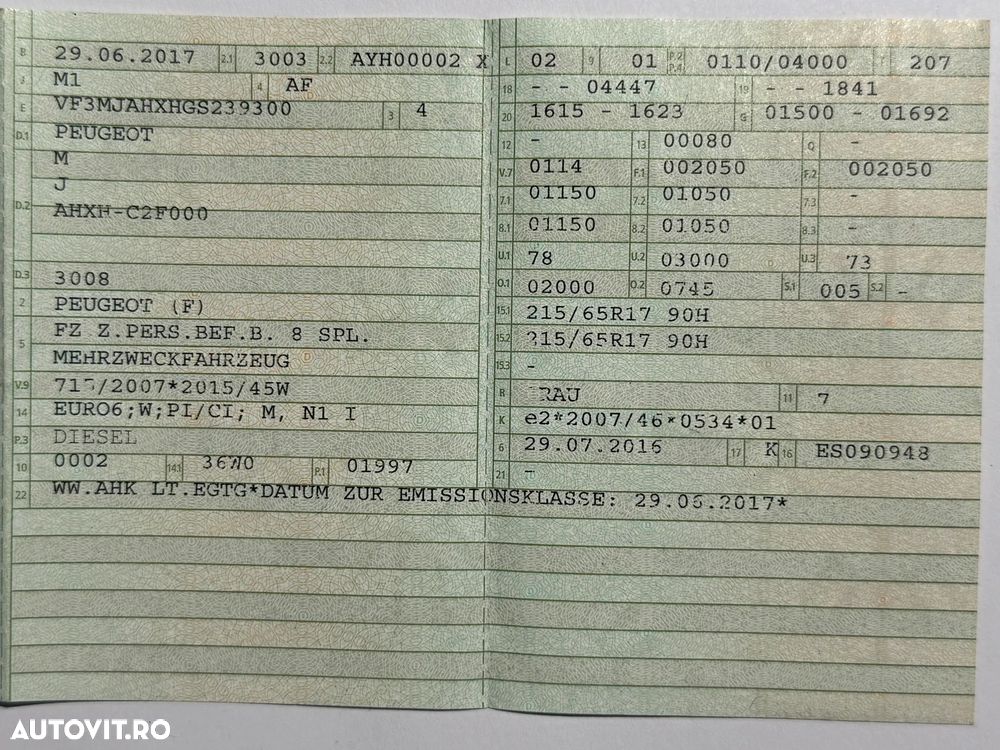 B 29.06.2017 2.1 3003 2.2 AYH00002 X
J M1 4 AF
E VF3MJAHXHGS239300 3 4
D.1 PEUGEOT
M
J
D.2 AHXH-C2F000
D.3 3008
2 PEUGEOT (F)
FZ Z.PERS.BEF.B. 8 SPL.
5 MEHRZWECKFAHRZEUG
V.9 715/2007*2015/45W
14 EURO6;W;PI/CI; M, N1 I
P.3 DIESEL
10 0002 14.1 36W0 P.1 01997
22 WW.AHK LT.EGTG*DATUM ZUR EMISSIONSKLASSE: 29.06.2017*
L 02 9 01 P.2 P.4 0110/04000 T 207
18 - - 04447 19 - - 1841
20 1615 - 1623 G 01500 - 01692
12 - 13 00080 Q -
V.7 0114 F.1 002050 F.2 002050
7.1 01150 7.2 01050 7.3 -
8.1 01150 8.2 01050 8.3 -
U.1 78 U.2 03000 U.3 73
O.1 02000 O.2 0745 S.1 005 S.2 -
15.1 215/65R17 90H
15.2 215/65R17 90H
15.3 -
R GRAU 11 7
K e2*2007/46*0534*01
6 29.07.2016 17 K 16 ES090948
21 -
AUTOVIT.RO